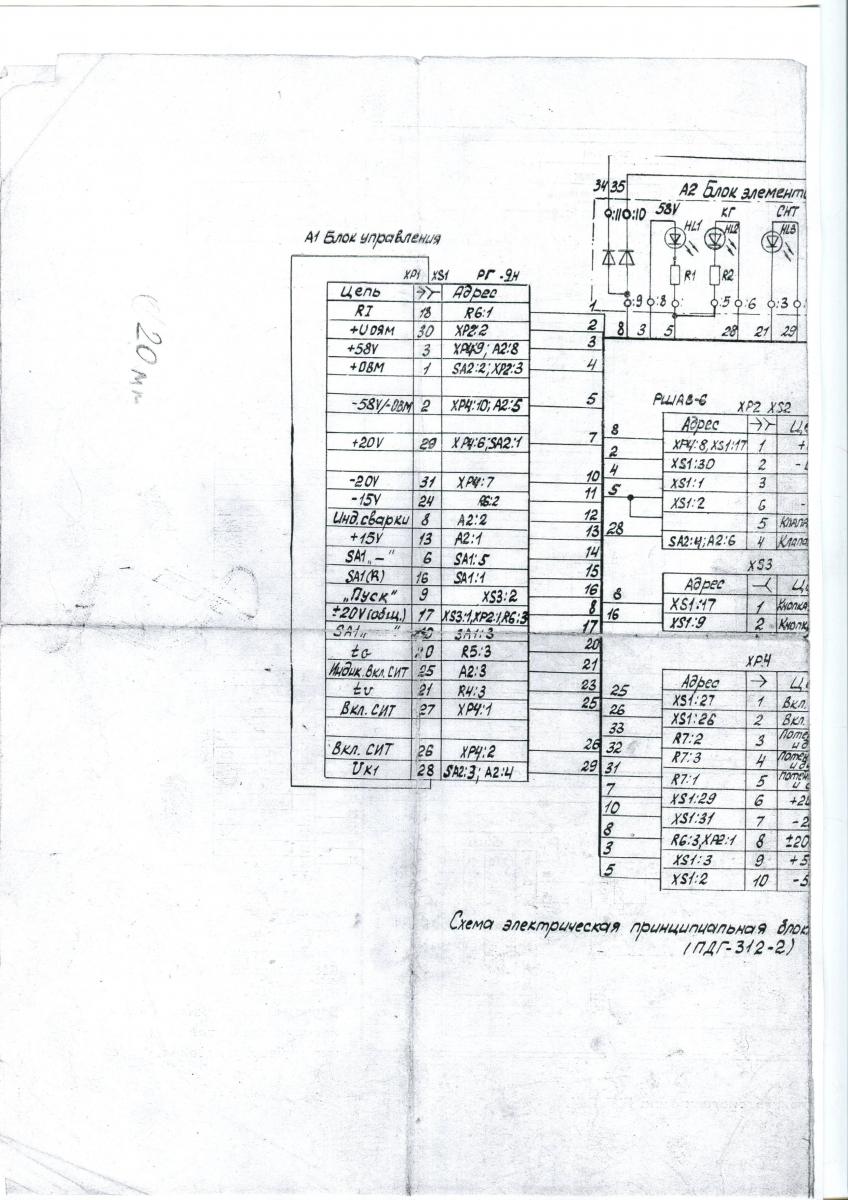 34 35
А2 Блок элемент
:11 :10
58V КГ СНТ
HL1 HL2 HL3
R1 R2
:9 :8 :5 :6 :3
8 3 5 28 21 29
А1 Блок управления
XP1 XS1 РГ-9Н
Цепь Адрес
RI 18 R6:1 1
30 XP2:2 2
+58V 3 XP4:9; A2:8 3
+ОВМ 1 SA2:2; XP2:3 4
-58V/-ОВМ 2 XP4:10; A2:5 5
+20V 29 XP4:6; SA2:1 7
-20V 31 XP4:7 10
-15V 24 R6:2 11
Инд.сварки 8 A2:2 12
+15V 13 A2:1 13
SA1„-" 6 SA1:5 14
SA1(R) 16 SA1:1 15
„Пуск" 9 XS3:2 16
±20V(общ.) 17 XS3:1,XP2:1,R6:3 8
SA1„ " SA1:3 17
tG 20 R5:3 20
Индик.Вкл.СИТ 25 A2:3 21
tv 21 R4:3 23
Вкл. СИТ 27 XP4:1 25
Вкл. СИТ 26 XP4:2 26
Uк1 28 SA2:3; A2:4 29
РША8-6 XP2 XS2
Адрес Це
8 XP4:8,XS1:17 1 +
2 XS1:30 2 -
4 XS1:1 3
5 XS1:2 6 -
5 Клапа
28 SA2:4; A2:6 4 Клапа
XS3
Адрес Це
8 XS1:17 1 Кнопка
16 XS1:9 2 Кнопк
XP4
Адрес Це
25 XS1:27 1 Вкл.
26 XS1:26 2 Вкл.
33 R7:2 3 Потен
32 R7:3 4 Потен
31 R7:1 5 Потен
7 XS1:29 6 +20
10 XS1:31 7 -2
8 R6:3,XP2:1 8 ±20
3 XS1:3 9 +5
5 XS1:2 10 -5
Схема электрическая принципиальная блок
(ПДГ-312-2)